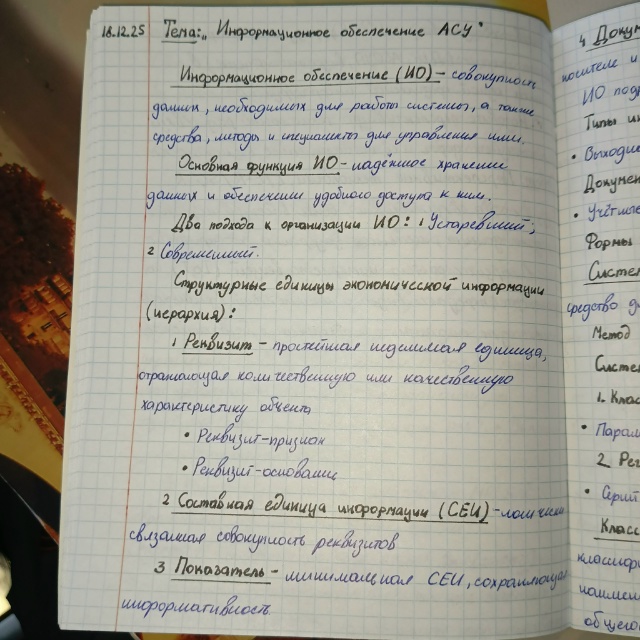 18.12.25 Тема: „ Информационное обеспечение АСУ"
Информационное обеспечение (ИО) - совокупность
данных, необходимых для работы системы, а также
средства, методы и специалисты для управления ими.
Основная функция ИО - надёжное хранение
данных и обеспечение удобного доступа к ним.
Два подхода к организации ИО: 1 Устаревший;
2 Современный.
Структурные единицы экономической информации
(иерархия):
1 Реквизит - простейшая неделимая единица,
отражающая количественную или качественную
характеристику объекта
• Реквизит-признак
• Реквизит-основание
2 Составная единица информации (СЕИ) - логически
связанная совокупность реквизитов
3 Показатель - минимальная СЕИ, сохраняющая
информативность.
4 Докум
носителе и
ИО подр
Типы ин
• Выходные
Докумен
• Учётные
Формы
Систем
средство д
Метод
Систем
1. Клас
• Парал
2 Рег
• Серий
Класс
классифи
наимен
общего